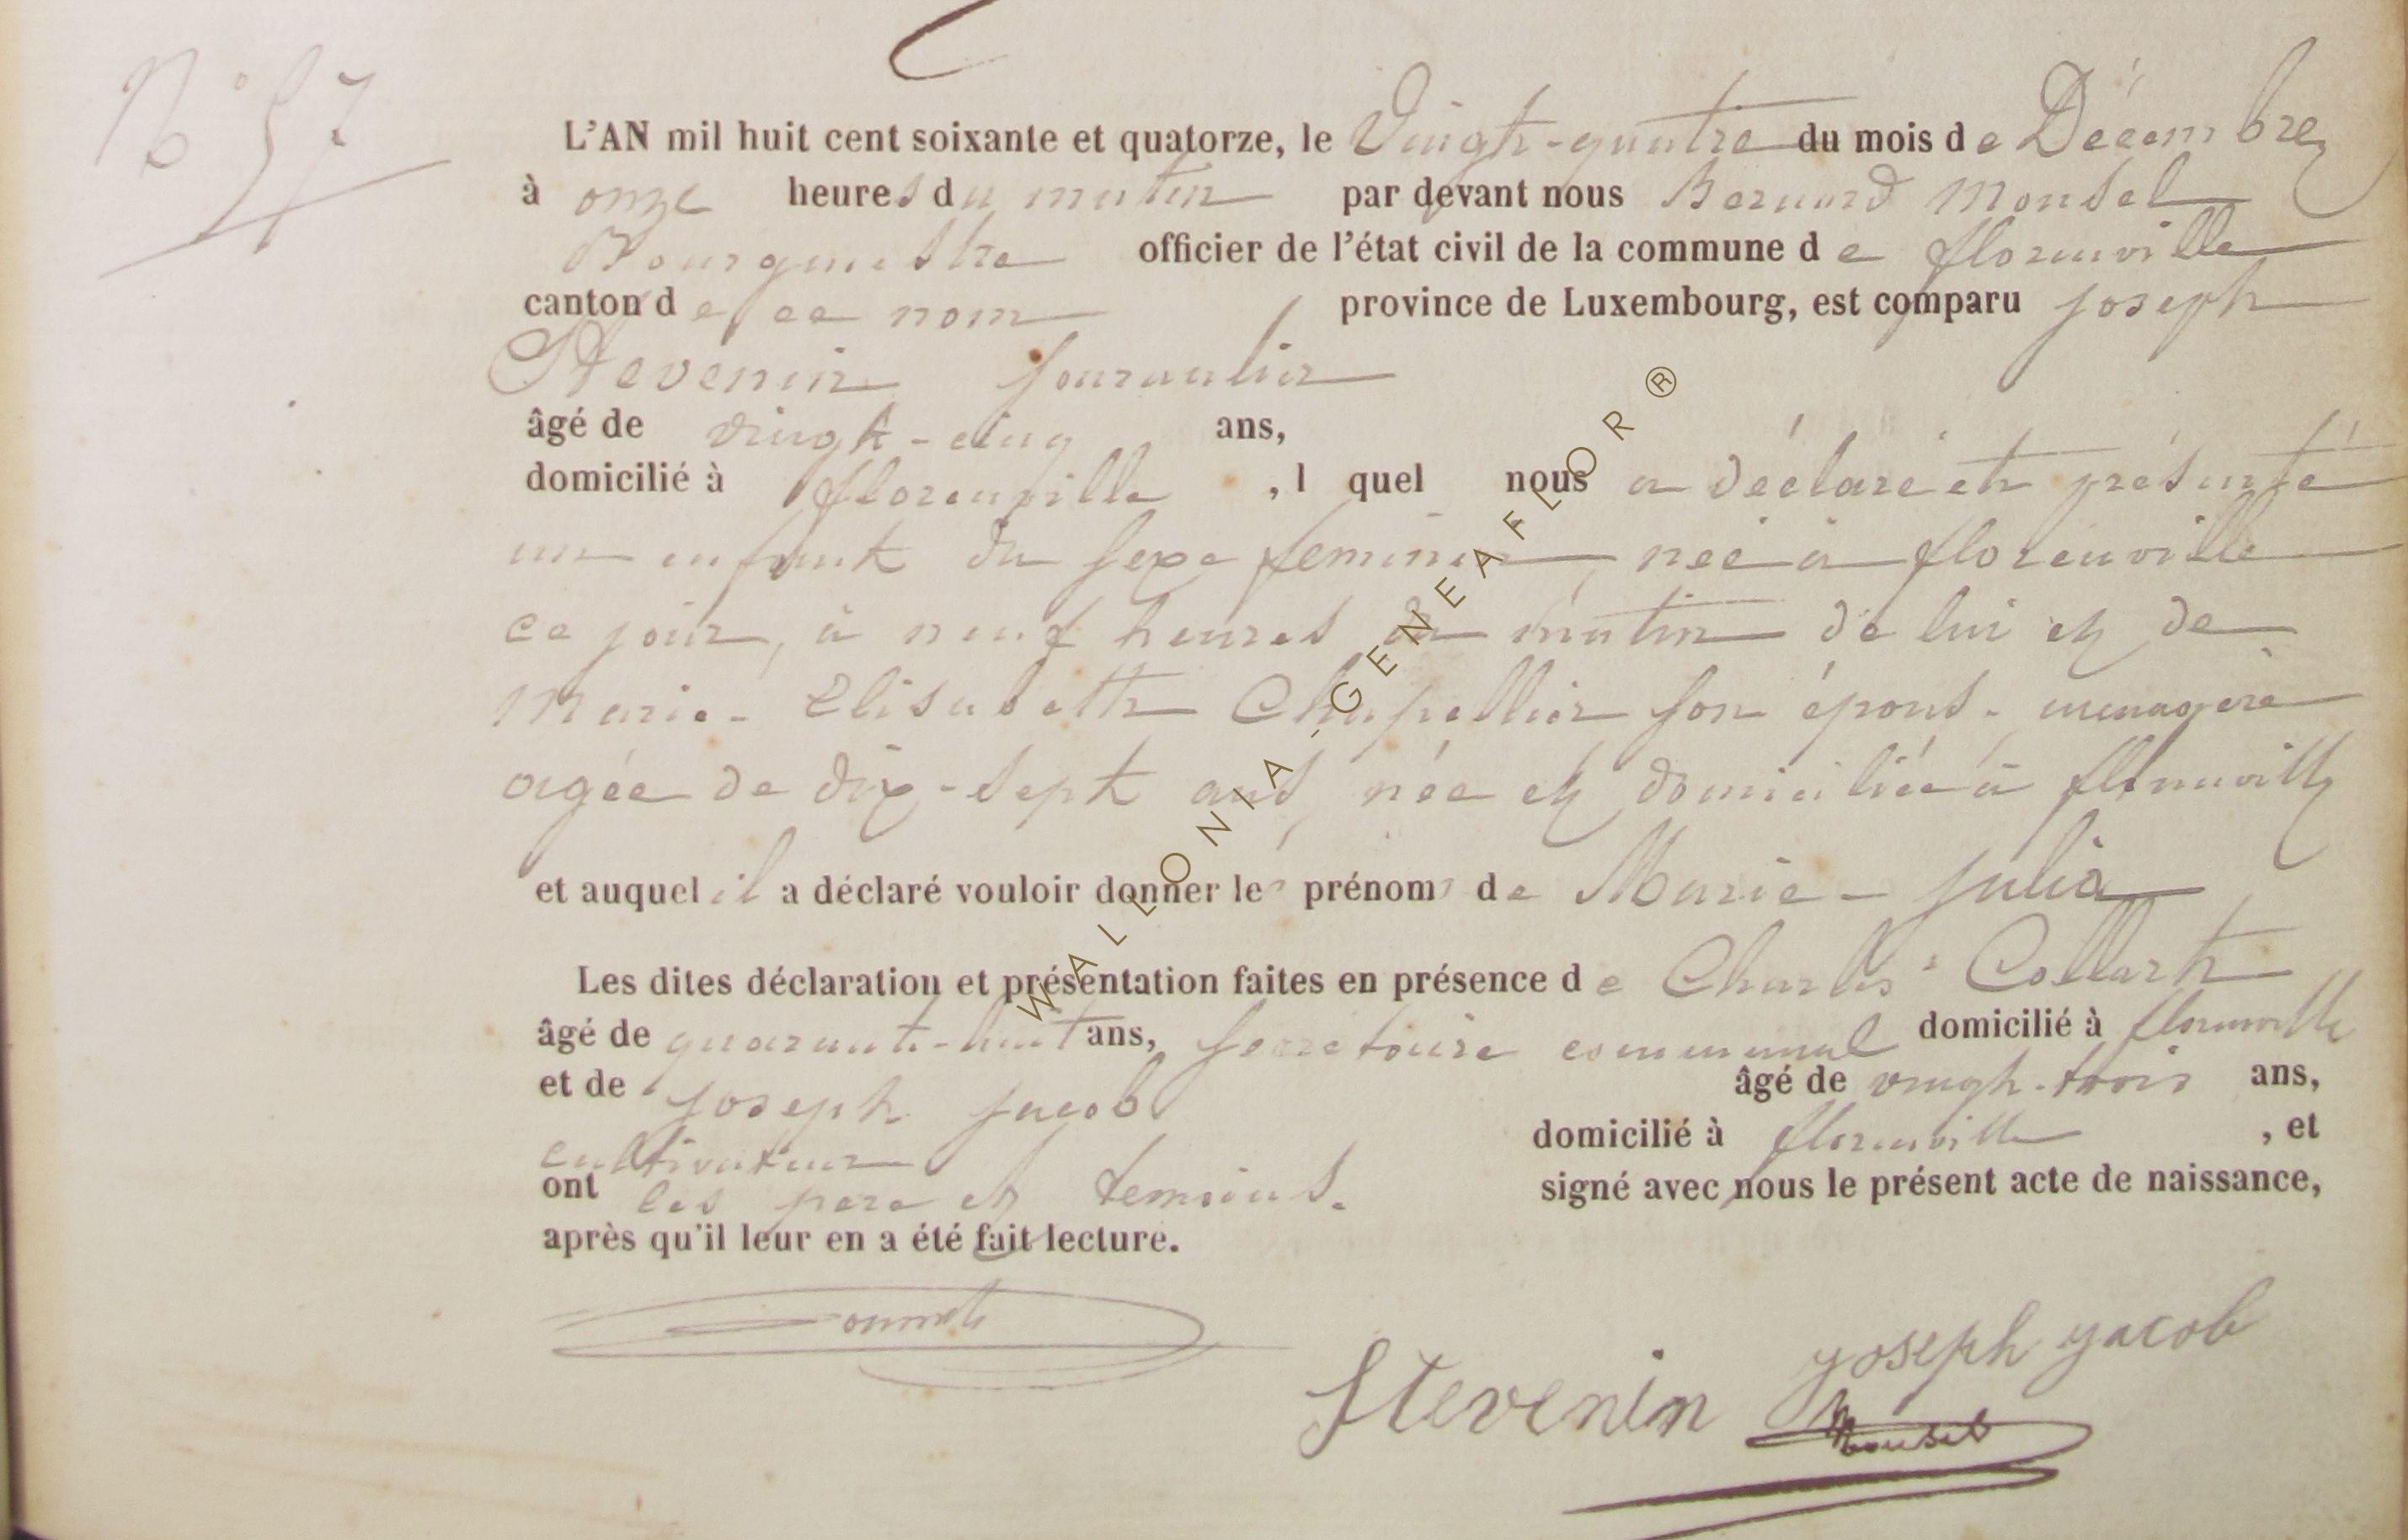 N° 57
L'AN mil huit cent soixante et quatorze, le Vingt-quatre du mois de Décembre
à onze heures du matin par devant nous Bernard Mousel
Bourgmestre officier de l'état civil de la commune de florenville
canton de ce nom province de Luxembourg, est comparu joseph
Stevenin journalier
âgé de vingt-cinq ans,
domicilié à florenville , l quel nous a déclaré et présenté
un enfant du sexe feminin, née à florenville
ce jour, à neuf heures du matin de lui et de
Marie-Elisabeth Chapellier son épouse menagère
agée de dix-sept ans, née et domiciliée à florenville
et auquel il a déclaré vouloir donner les prénoms de Marie-julia
Les dites déclaration et présentation faites en présence de Charles Collart
âgé de quarante-huit ans, secretaire communal domicilié à florenville
et de joseph jacob âgé de vingt-trois ans,
cultivateur domicilié à florenville , et
ont les pere et temoins. signé avec nous le présent acte de naissance,
après qu'il leur en a été fait lecture.
joseph jacob
Stevenin
Mousel
WALLONIA-GENEAFLOR ®